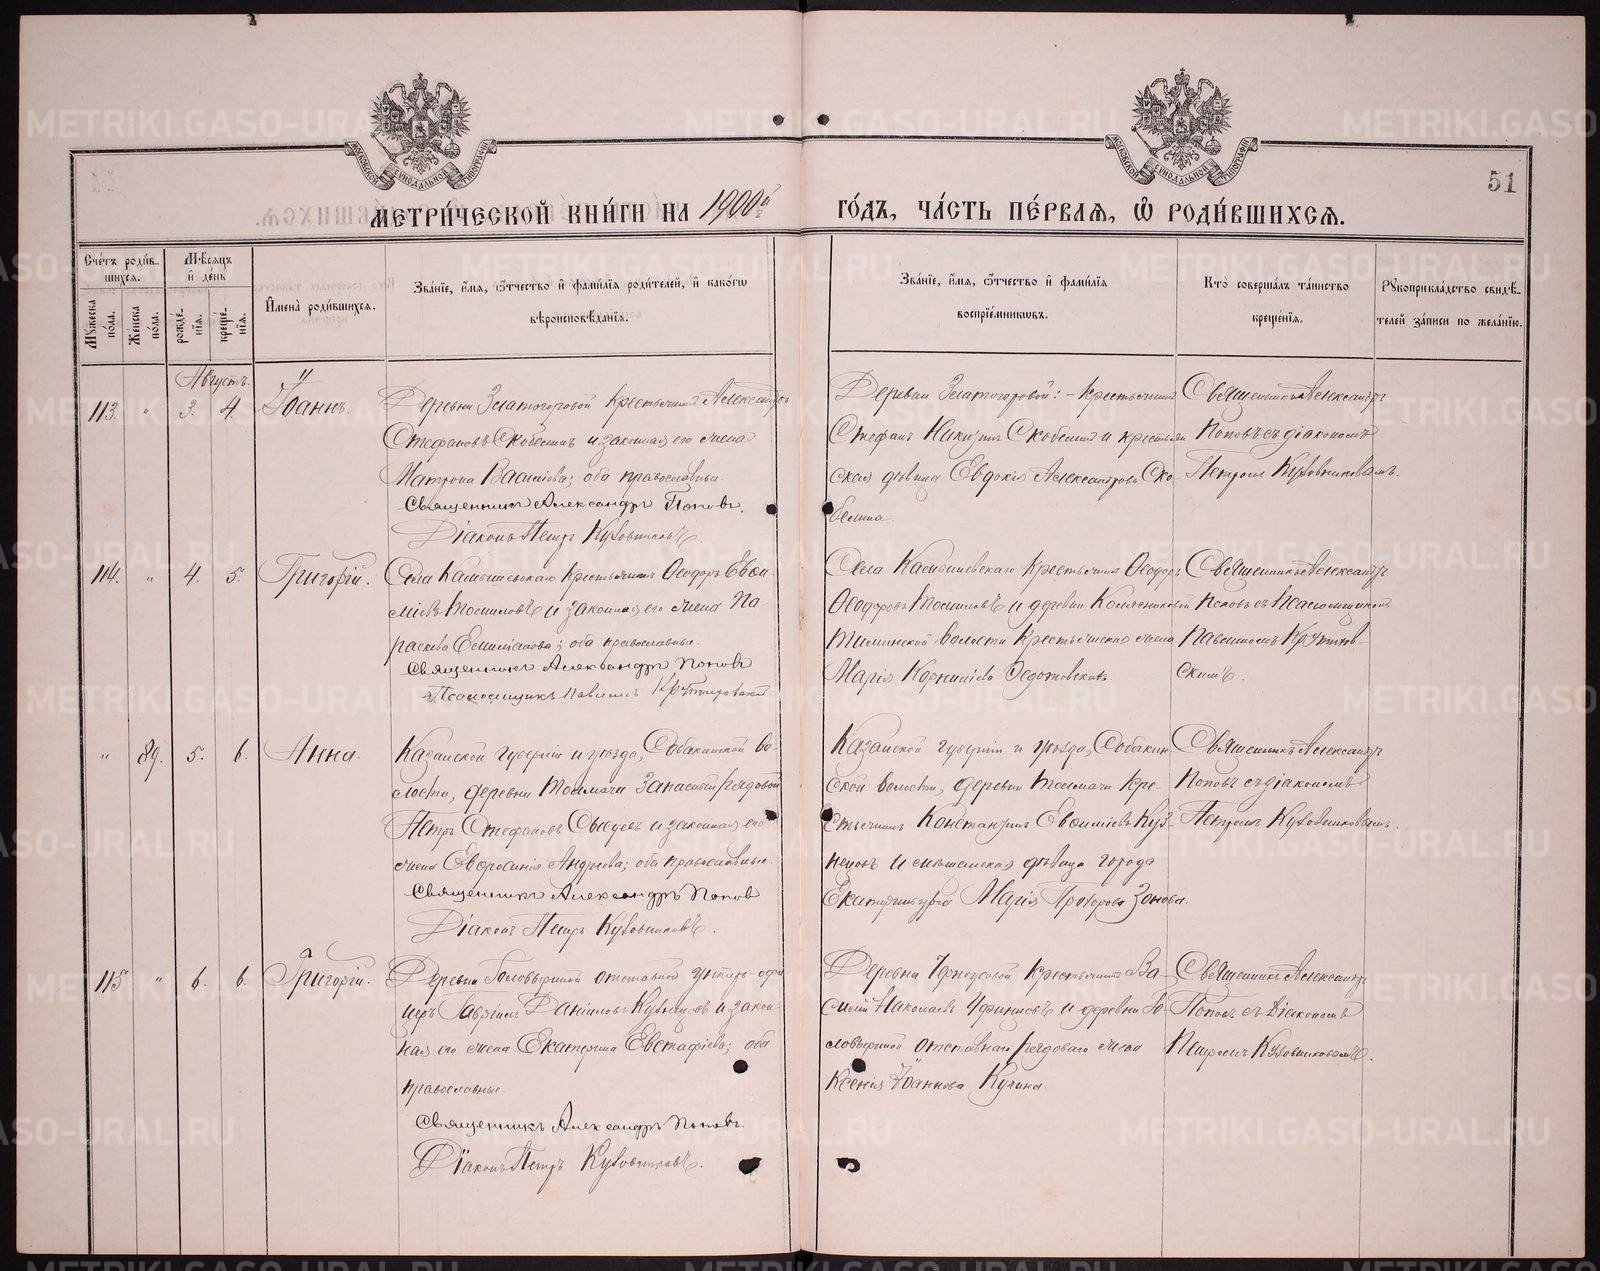 51
МЕТРИ́ЧЕСКОЙ КНИ́ГИ НА 1900й ГО́ДЪ, ЧА́СТЬ ПЕ́РВАѦ, Ѡ҆ РОДИ́ВШИХСѦ.
Сче́тъ роди́вшихсѧ.
Мꙋ́жеска по́ла.
Же́нска по́ла.
Мѣ́сѧцъ и҆ де́нь
рожде́нїѧ.
креще́нїѧ.
И҆мена̀ роди́вшихсѧ.
Зва́нїе, и҆́мѧ, ѻ҆́тчество и҆ фамі́лїѧ роди́телей, и҆ како́гѡ
вѣроисповѣ́данїѧ.
Зва́нїе, и҆́мѧ, ѻ҆́тчество и҆ фамі́лїѧ
воспрїе́мникѡвъ.
Кто̀ соверша́лъ та́инство
креще́нїѧ.
Рꙋкоприкла́дство свидѣ́-
телей за́писи по жела́нїю.
Августъ.
113. " 3. 4. Іоаннъ.
Деревни Златогоровой крестьянинъ Александръ
Стефановъ Скобелинъ и законная его жена
Матрона Василіева; оба православные
Священникъ Александръ Поповъ.
Діаконъ Петръ Кузовниковъ.
Деревни Златогоровой: - крестьянинъ
Стефанъ Скобелинъ и крестьян
ская дѣвица Евдокія Александрова Ско-
белина.
Священникъ Александръ
Поповъ съ діакономъ
Петромъ Кузовниковымъ.
114. " 4. 5. Григорій.
Села Камышевскаго крестьянинъ Ѳеодоръ Евѳи-
міевъ и законная его жена Па-
раскева; оба православные.
Священникъ Александръ Поповъ
Псаломщикъ Павелъ Крутиховскій
Села Камышевскаго крестьянинъ Ѳеодоръ
Ѳеодоровъ и деревни
волости крестьянская жена
Марія Корниліева Федотовскихъ
Священникъ Александръ
Поповъ съ Псаломщикомъ
Павломъ Крутихов-
скимъ.
" 89. 5. 6. Анна.
Казанской губерніи и уѣзда, Собакинской во-
лости, деревни Толмачи запасный рядовой
Петръ Стефановъ Сысуевъ и законная его
жена Евфросинія Андреева; оба православные.
Священникъ Александръ Поповъ
Діаконъ Петръ Кузовниковъ.
Казанской губерніи и уѣзда, Собакин-
ской волости, деревни Толмачи кре-
стьянинъ Константинъ Евѳиміевъ Куз-
нецовъ и мѣщанская дѣвица города
Екатеринбурга Марія Прохорова Зонова.
Священникъ Александръ
Поповъ съ діакономъ
Петромъ Кузовниковымъ.
115 " 6. 6. Григорій.
Деревни Головыриной отставной унтеръ-офи
церъ Гавріилъ Даніиловъ Кузнецовъ и закон-
ная его жена Екатерина Евстафіева; оба
православные.
Священникъ Александръ Поповъ.
Діаконъ Петръ Кузовниковъ.
Деревни Черноусовой крестьянинъ Ва-
силій Николаевъ и деревни Го-
ловыриной отставнаго рядоваго жена
Ксенія Іоаннова Кузина.
Священникъ Александръ
Поповъ съ Діакономъ
Петромъ Кузовниковымъ.